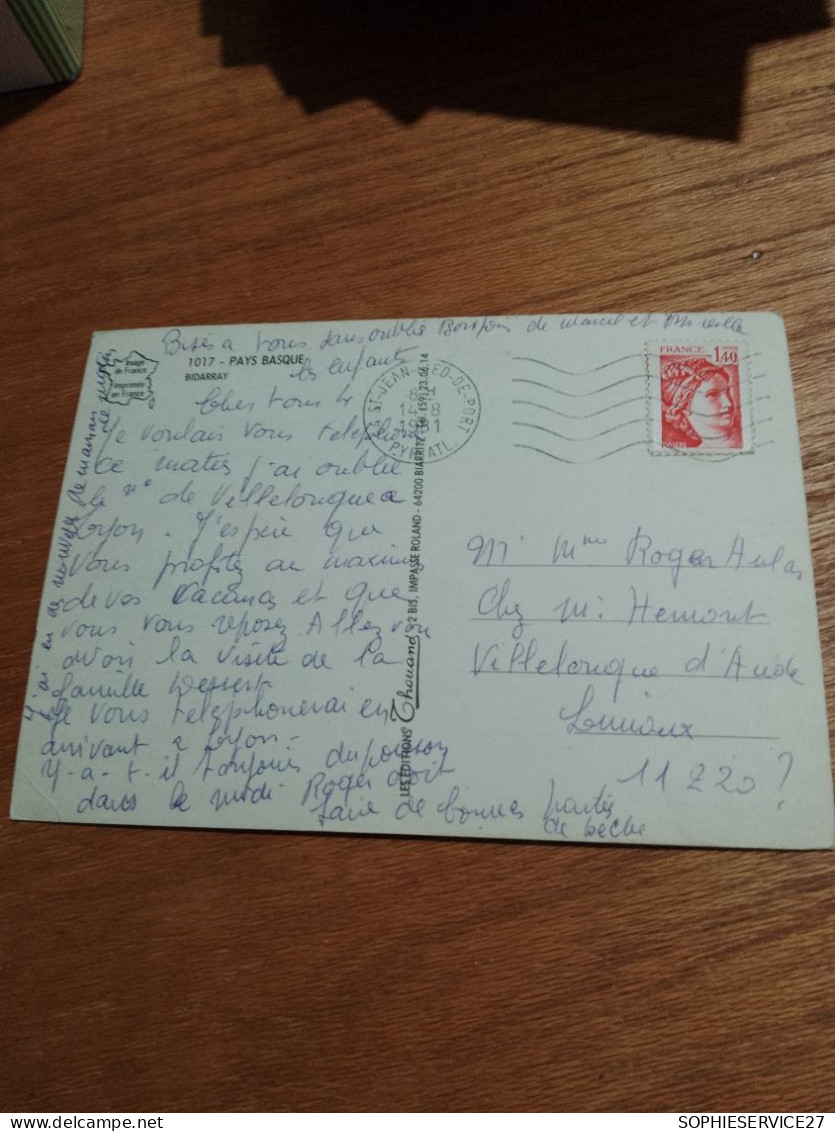 Bises a tous sans oublié Bonspin de Marcel et Mireille
les enfants
1017 - PAYS BASQUE
BIDARRAY
Image de France
Imprimée en France
Cher tous 4
Je voulais vous telephoner
ce matin j'ai oublié
le n° de Villelongue a
Lyon. J'espère que
vous profitez au maximum
de vos vacances et que
vous vous reposez Allez vous
avoir la visite de la
famille
Je vous telephonerai en
arrivant a Lyon -
Y-a-t-il toujours du poisson
dans le midi Roger doit
faire de bonnes parties
de peche
J'ai eu des nouvelles de maman
LES EDITIONS Thouand 2 BIS, IMPASSE ROLAND - 64200 BIARRITZ - Tél. (59) 23.06.14
64 ST-JEAN-PIED-DE-PORT
8 H
14-8
1981
PYR. ATL.
FRANCE
1,40
M. Mme Roger Aulas
Chez M. Hemont
Villelongue d'Aude
Limoux
11220?
SOPHIESERVICE27